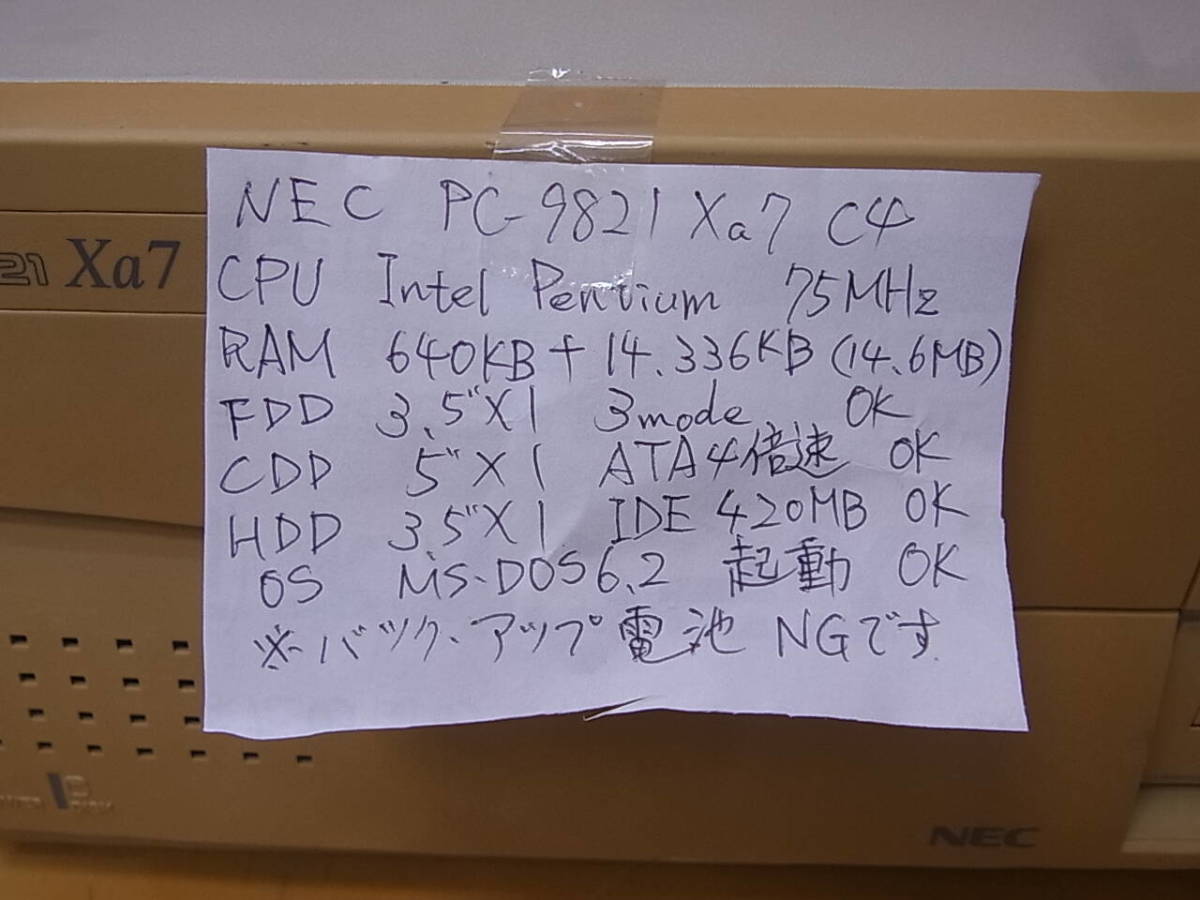 NEC PC-9821 Xa7 C4
21 Xa7
CPU Intel Pentium 75MHz
RAM 640KB + 14.336KB (14.6MB)
FDD 3.5"X1 3mode OK
CDD 5"X1 ATA4倍速 OK
HDD 3.5"X1 IDE 420MB OK
OS MS-DOS6.2 起動 OK
※バックアップ電池 NGです
DISK
NEC